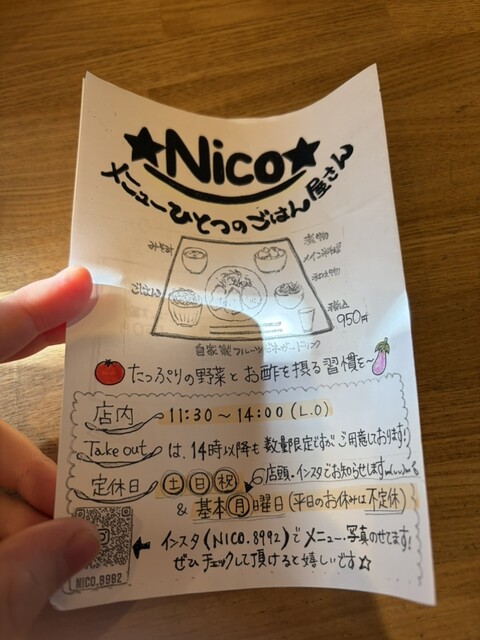 ★Nico★
メニューひとつのごはん屋さん
税込
950円
自家製フルーツビネガードリンク
たっぷりの野菜とお酢を摂る習慣を〜
店内 11:30〜14:00(L.O)
Take outは、14時以降も数量限定ですがご用意しております!
定休日 土日祝 店頭・インスタでお知らせします
&基本月曜日(平日のお休みは不定休)
インスタ(NICO.8992)でメニュー・写真のせてます!
ぜひチェックして頂けると嬉しいです☆
NICO.8992